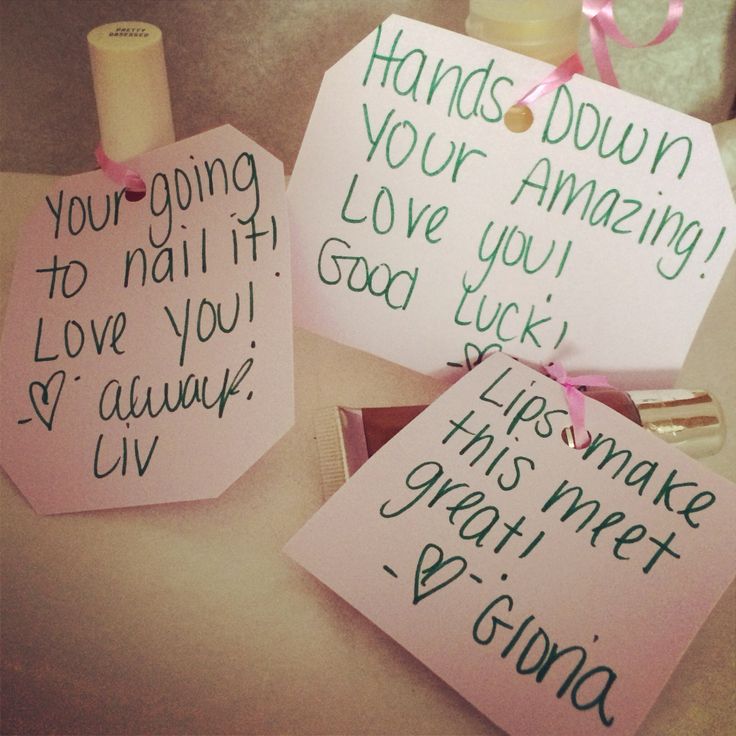 PRETTY
OBSESSED
Your going
to nail it!
Love you!
-♡- always.
Liv
Hands Down
Your Amazing!
Love you!
Good Luck!
-♡
Lips make
this meet
great!
-♡-
Gloria